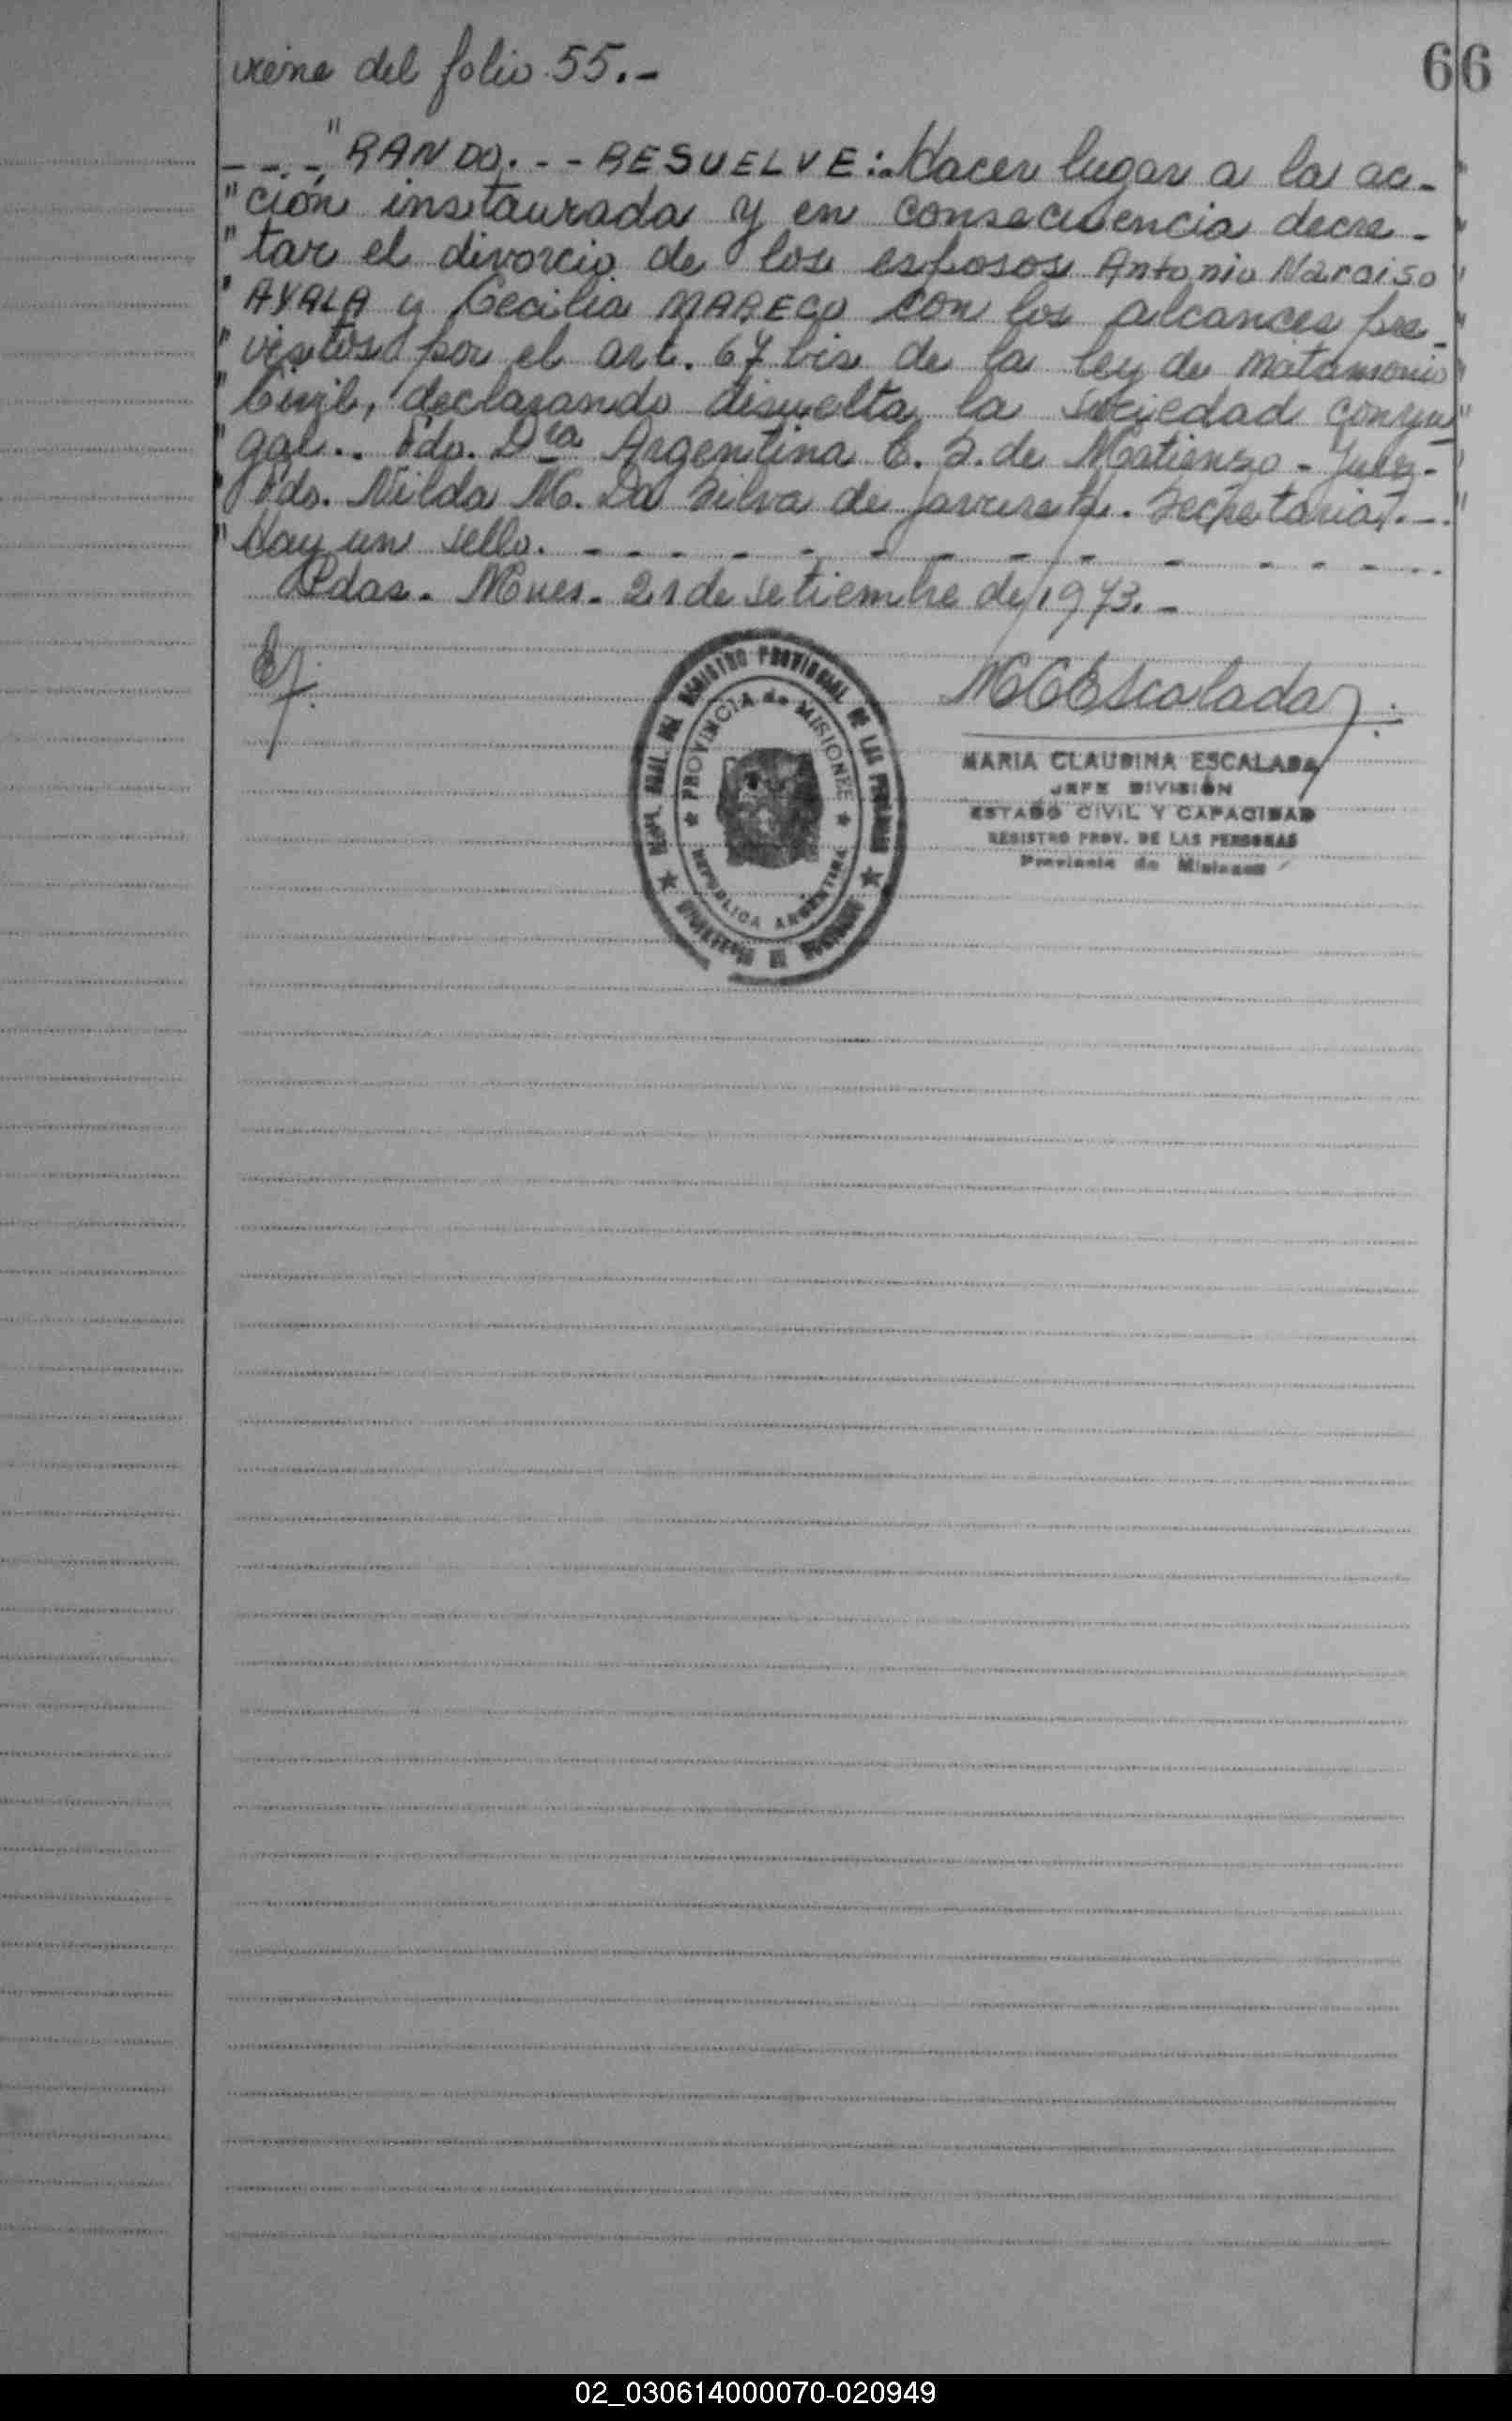 viene del folio 55.-
66
- - - "RANDO. - - RESUELVE: Hacer lugar a la ac-
"ción instaurada y en consecuencia decre-
"tar el divorcio de los esposos Antonio Narciso
"AYALA y Cecilia MARECO con los alcances pre-
"vistos por el art. 67 bis de la ley de Matrimonio
"Civil, declarando disuelta la sociedad conyu-
"gal.. Fdo. Dra Argentina C. S. de Matienzo - Juez.-
"Fdo. Nilda M. Da Silva de . Secretaria.-
"Hay un sello. - - - - - - - - - - - - -
Pdas. Mnes. 21 de setiembre de 1973.-
MCEscalada
MARIA CLAUDINA ESCALADA
JEFE DIVISIÓN
ESTADO CIVIL Y CAPACIDAD
REGISTRO PROV. DE LAS PERSONAS
Provincia de Misiones
GRAL. DEL REGISTRO PROVINCIAL DE LAS PERSONAS
PROVINCIA de MISIONES
REPUBLICA ARGENTINA
02_030614000070-020949